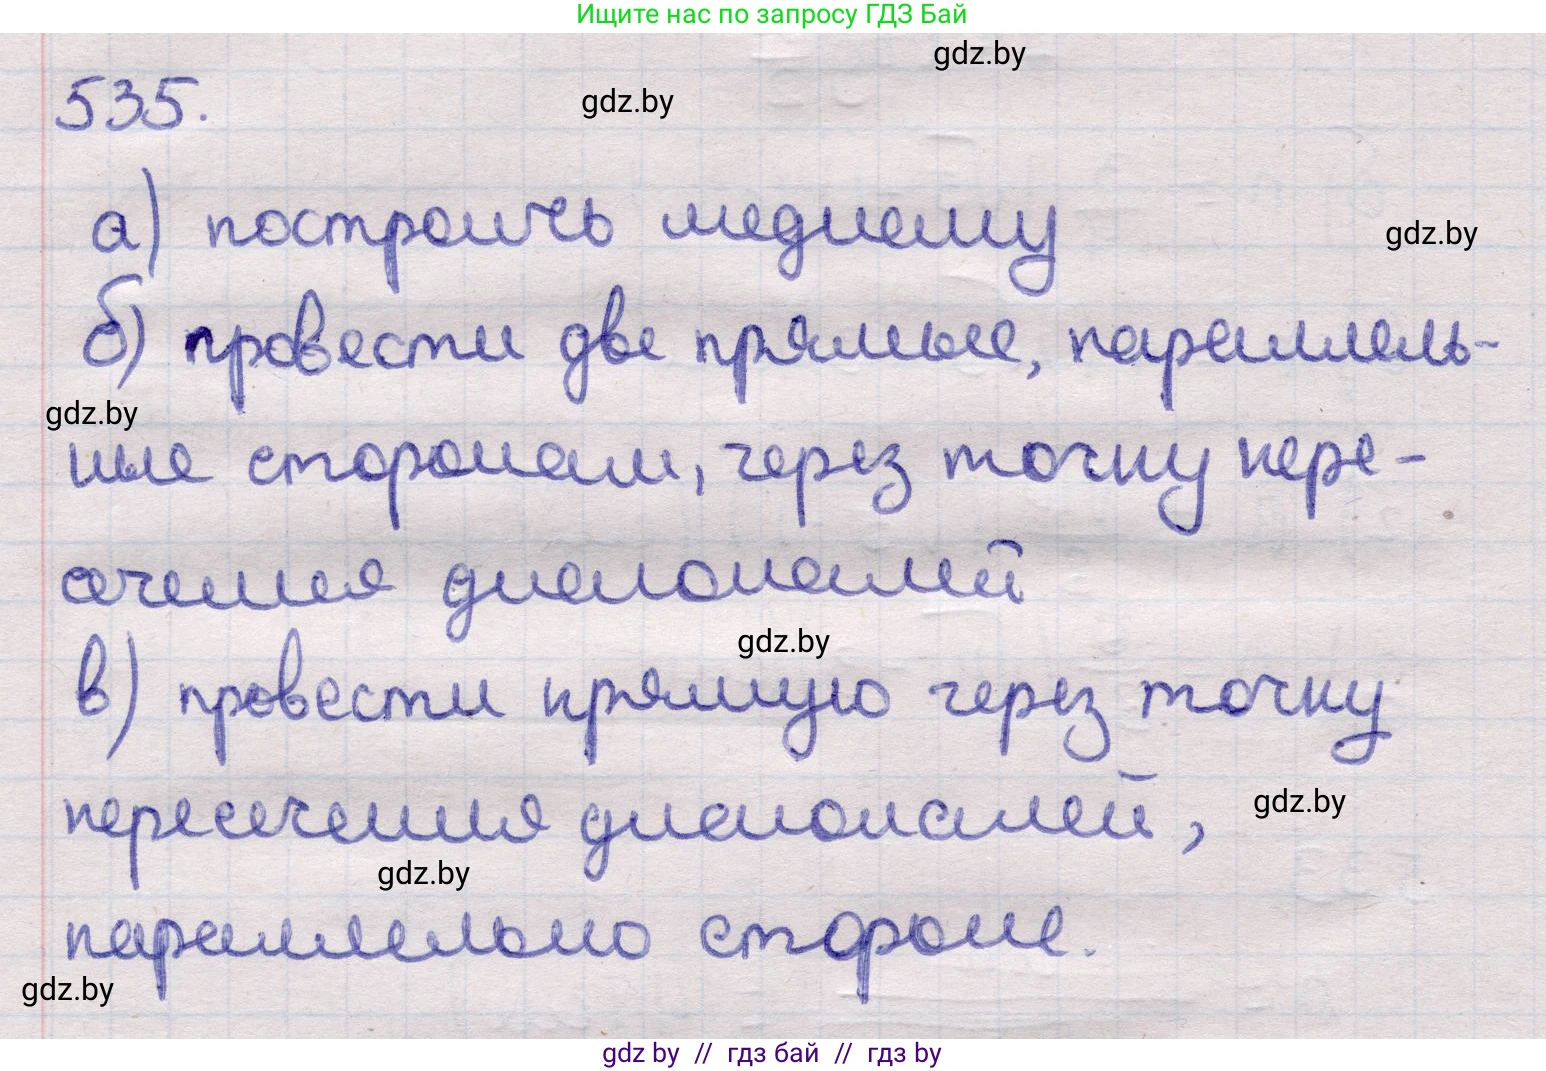 Ищите нас по запросу ГДЗ Бай
gdz.by
535.
gdz.by
а) построить медиану
gdz.by
б) провести две прямые, параллель-
gdz.by
ные сторонам, через точку пере-
сечения диагоналей
gdz.by
в) провести прямую через точку
пересечения диагоналей,
gdz.by
gdz.by
параллельно стороне.
gdz.by
gdz by // гдз бай // гдз by